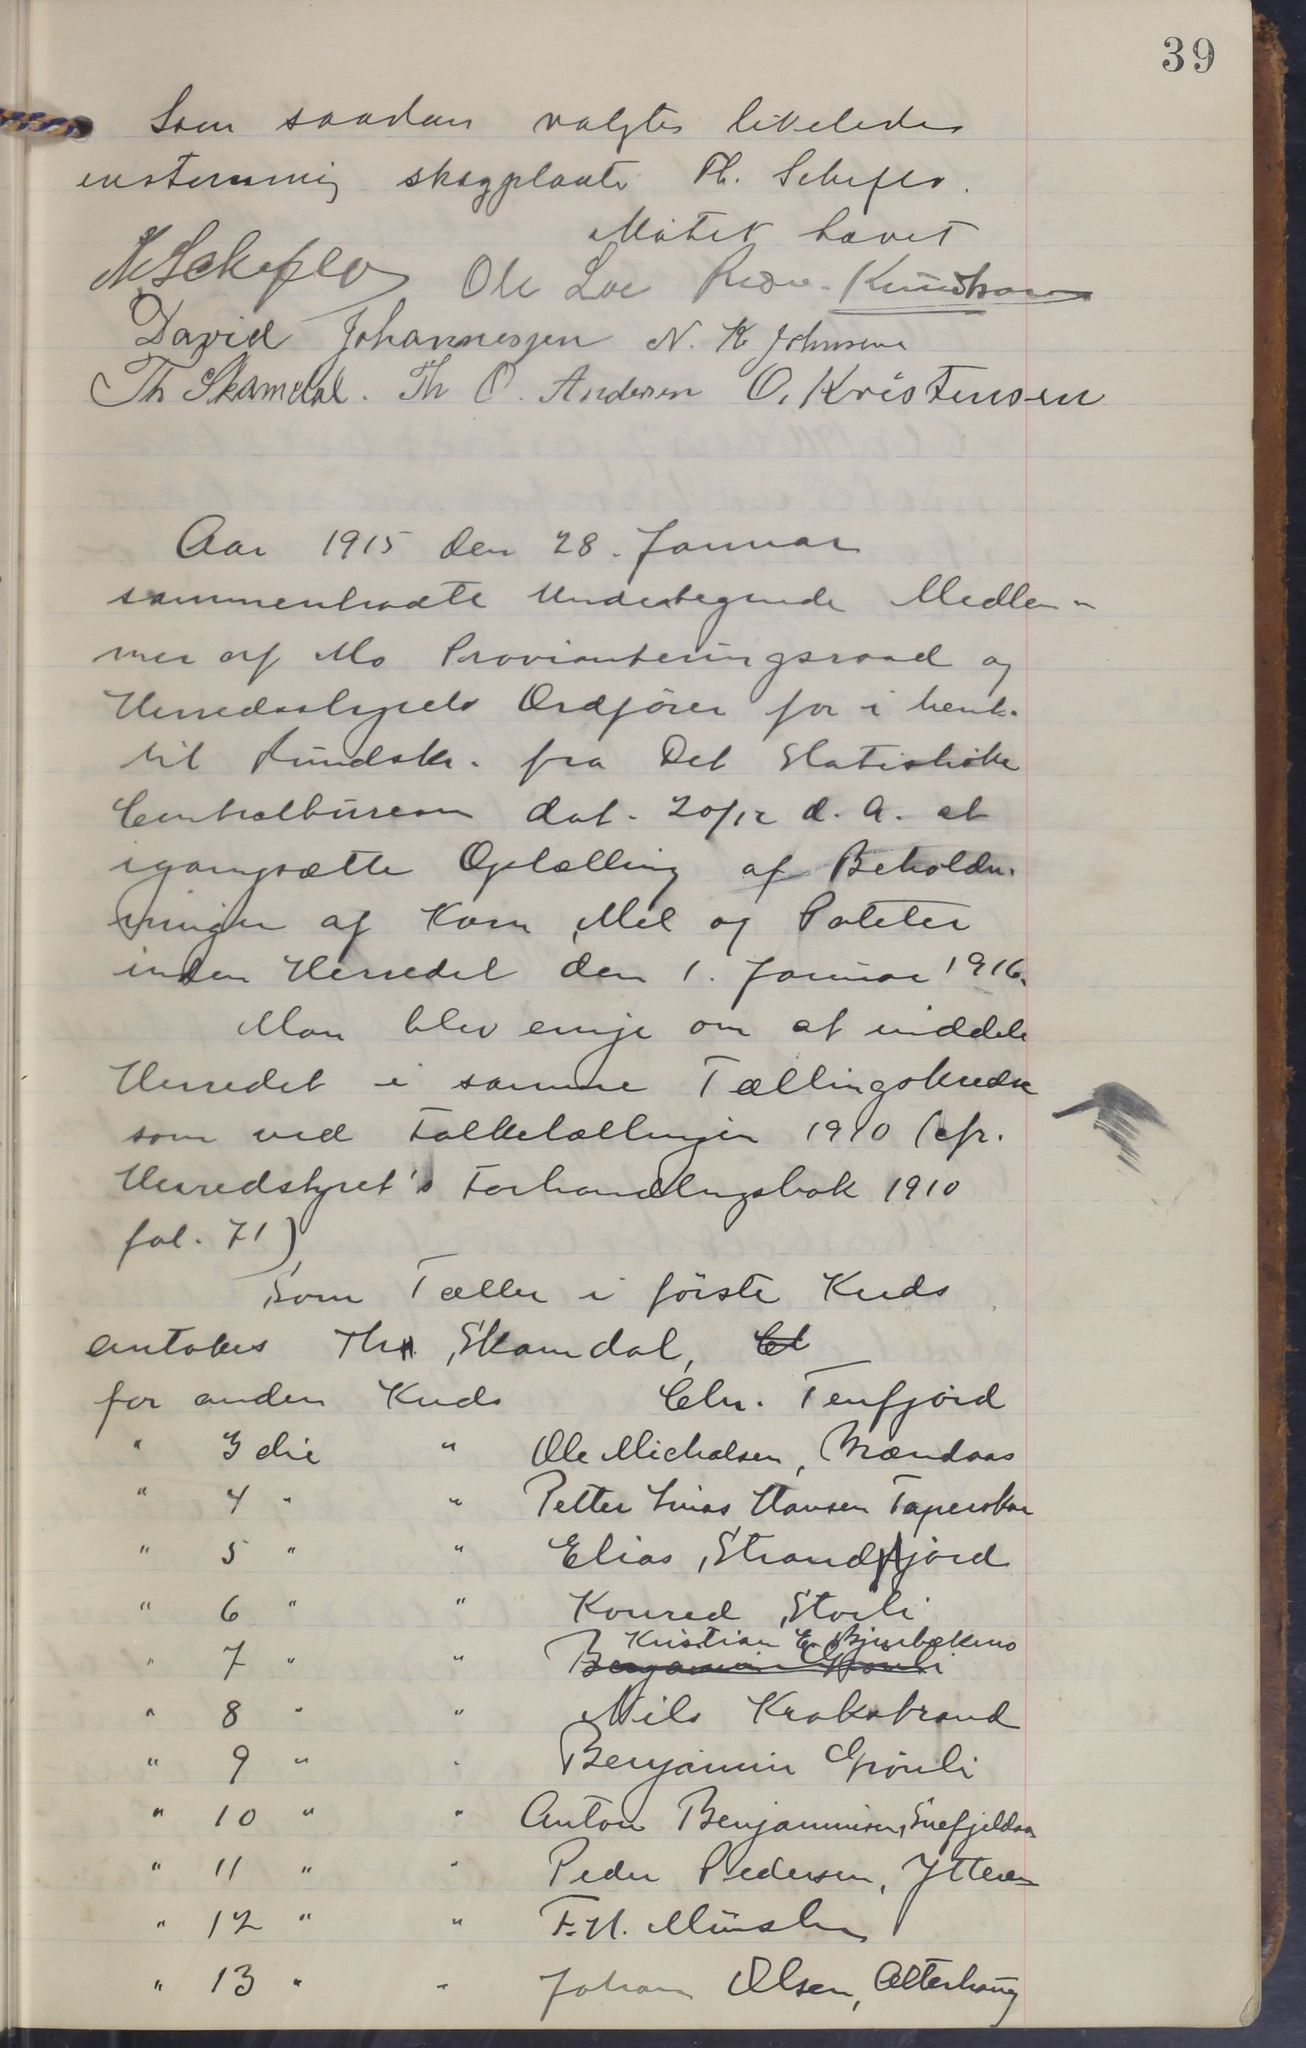 39
Som saadan valgtes likeledes
enstemmig skogplante Th. Scheflo.
Møtet hævet
N Scheflo Ole Loe Pedr. Knudsen
David Johannessen N. K. Johnsen
Th Skamdal. Th O. Andersen O. Kristensen
Aar 1915 den 28. Januar
sammentraadte Undertegnede Medlem-
mer af Mo Provianteringsraad og
Herredsstyrets Ordfører for i henh.
til Rundskr. fra Det Statistiske
Centralbureau dat. 20/12 d. A. at
igangsætte Optælling af Beholdn.
ninger af Korn, Mel og Poteter
inden Herredet den 1. Januar 1916.
Man blev enije om at inddele
Herredet i samme Tællingskredse
som ved Folketællingen 1910 (cfr.
Herredstyret's Forhandlingsbok 1910
fol. 71)
Som Tæller i første Kreds
antokes Th. Skamdal, Cl
for anden Kreds Chr. Tenfjord
" 3die " Ole Michalsen, Brændaas
" 4 " " Petter Linas Hansen Taperskar
" 5 " " Elias Strandfjord
" 6 " " Konrad Storli
Kristian E. Bjurbækmo
" 7 " " Benjamin Grønli
" 8 " " Nils Krokstrand
" 9 " " Benjamin Grønli
" 10 " " Anton Benjaminsen, Snefjeldaa
" 11 " " Peder Pedersen, Ytteren
" 12 " " F. H. Münster
" 13 " " Johan Olsen, Alterhaug